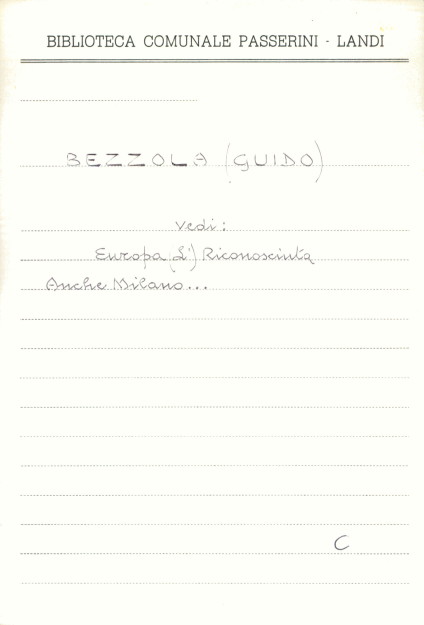 BIBLIOTECA COMUNALE PASSERINI - LANDI
BEZZOLA (GUIDO)
Vedi:
Europa (L') Riconosciuta
Anche Milano...
C